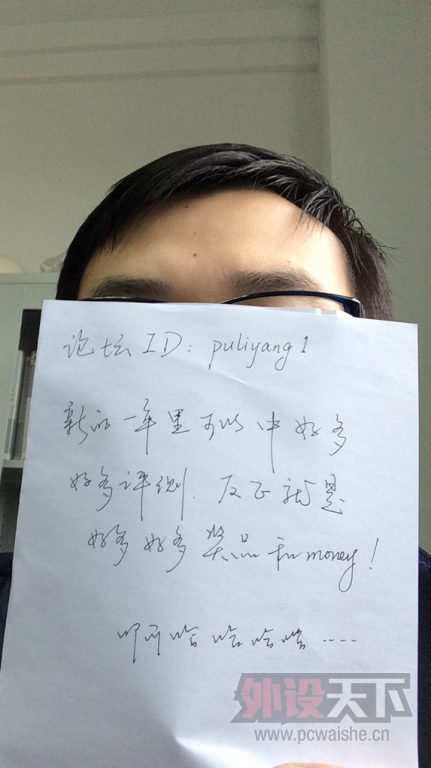 论坛ID: puliyang1
新的一年里可以中好多
好多评测. 反正就是
好多好多奖品和money!
啊哈哈哈哈....
外设天下
www.pcwaishe.cn